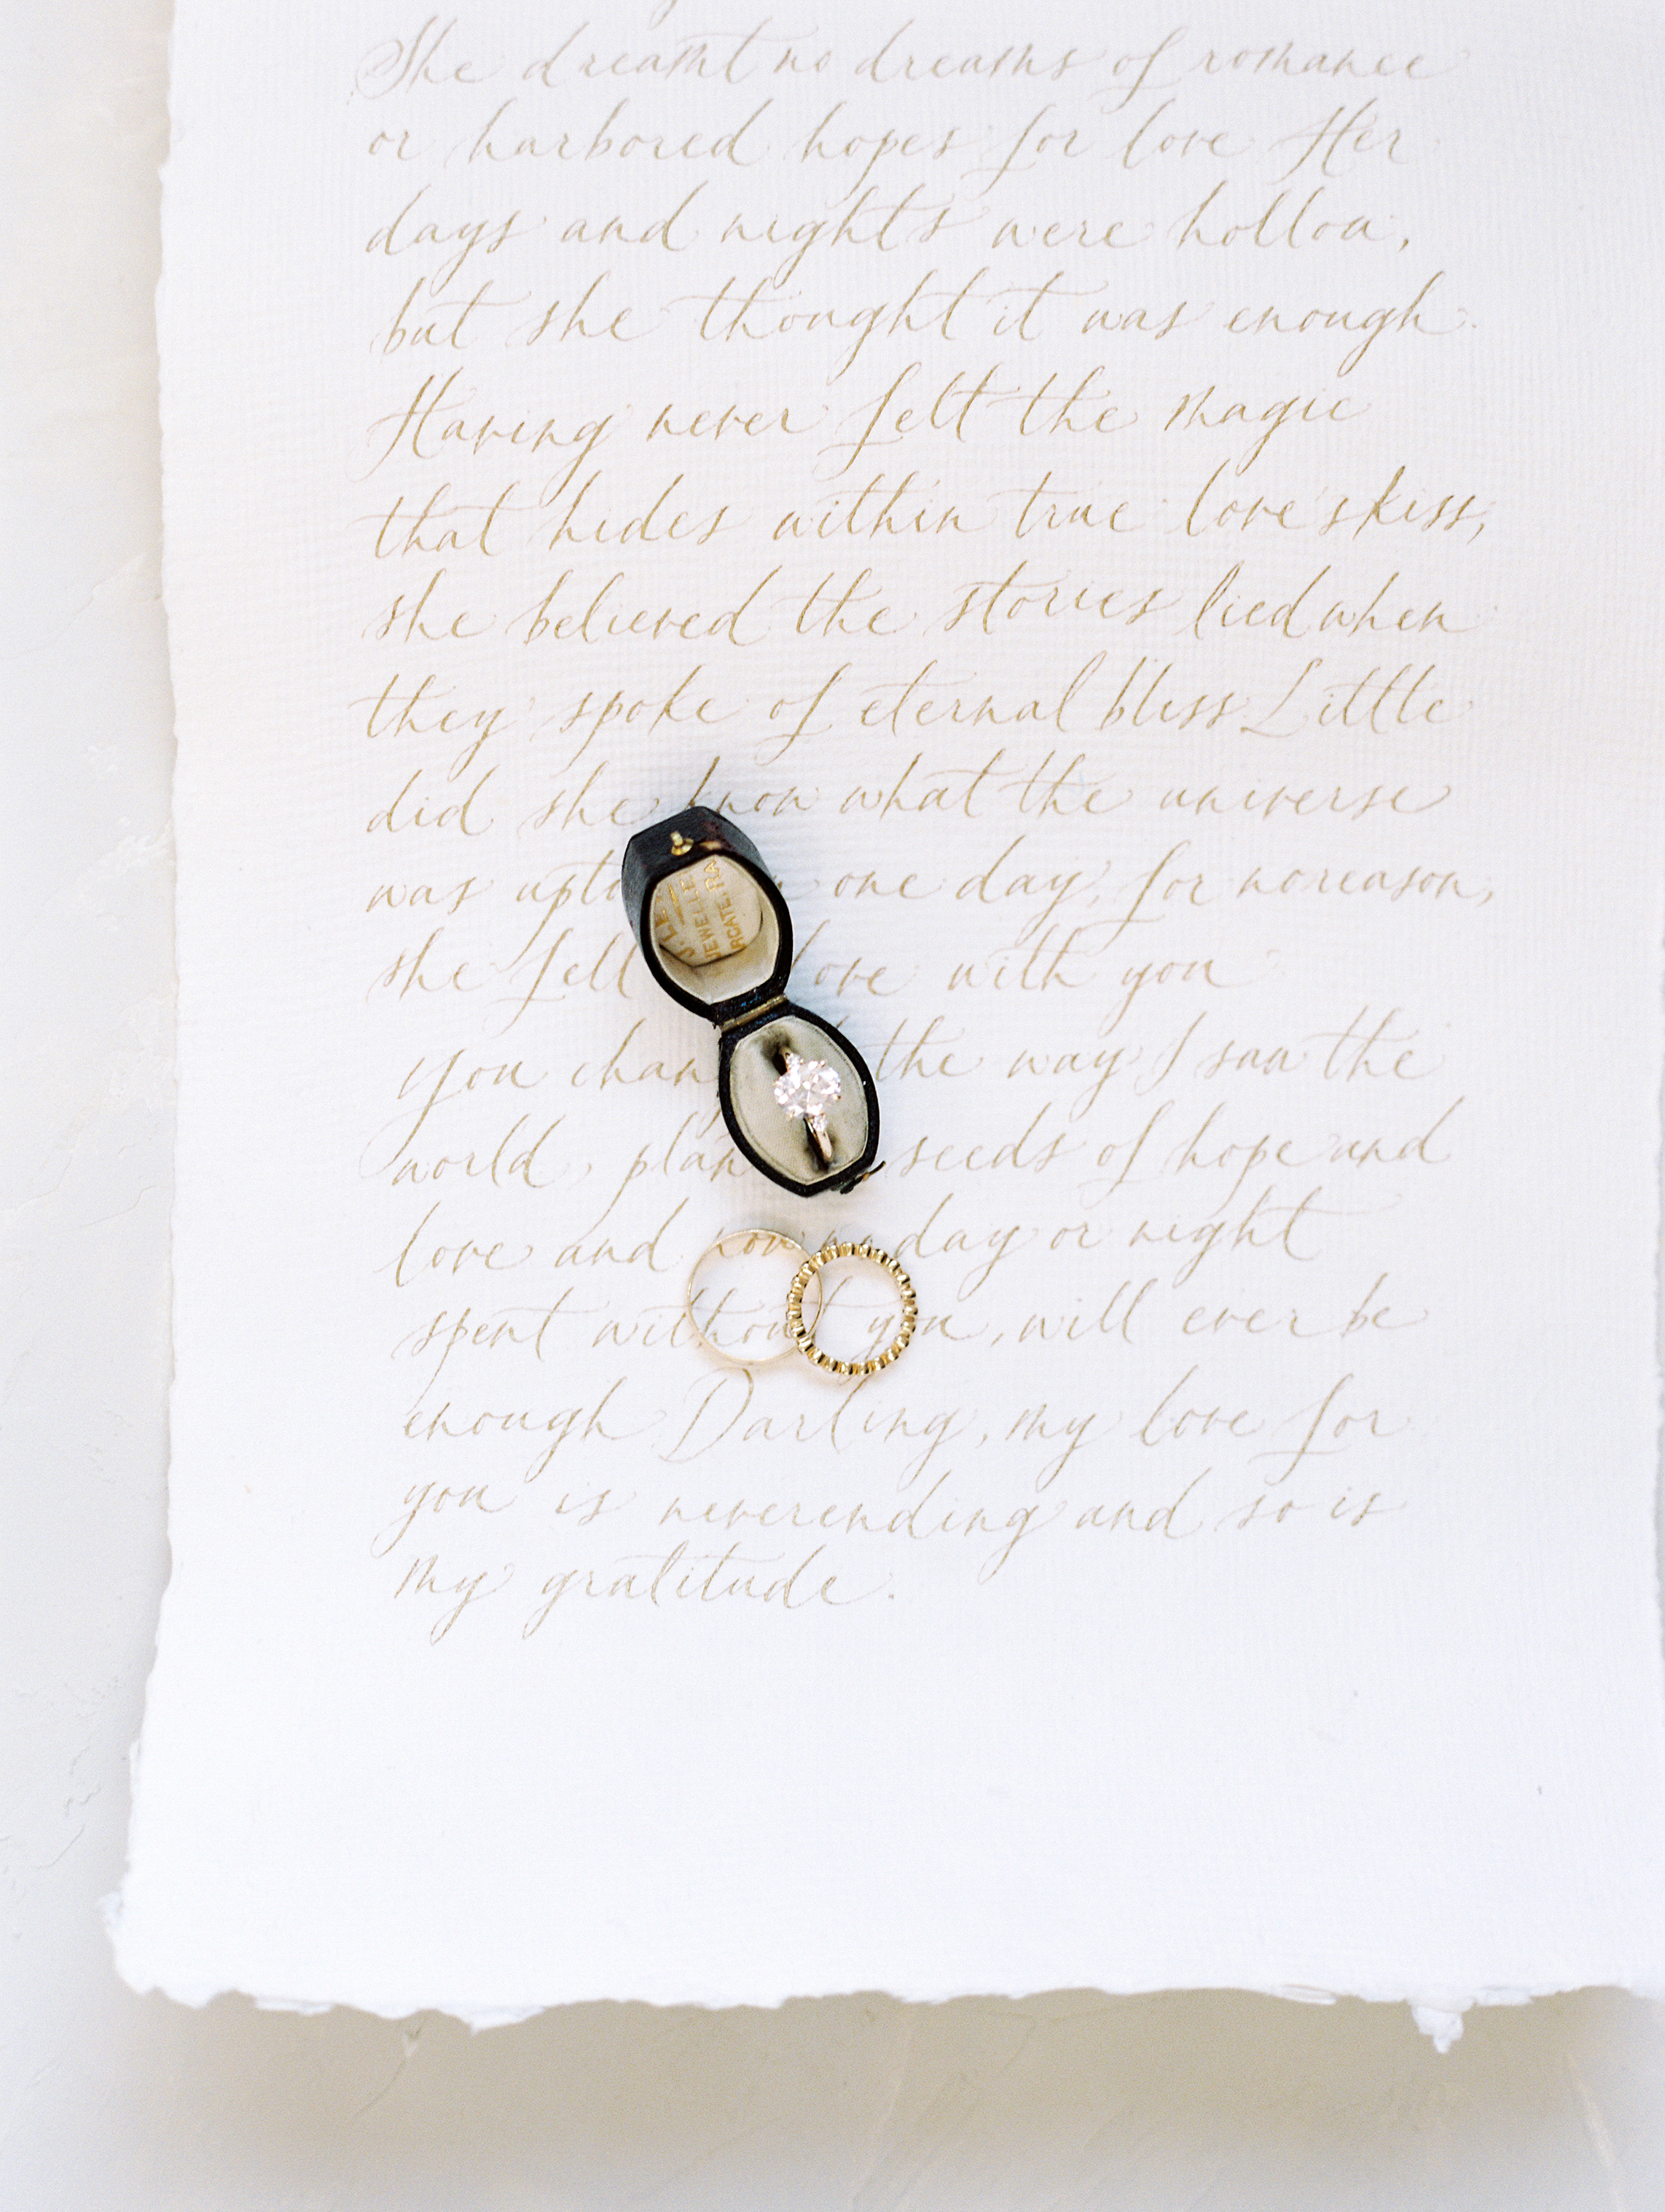 She dreamt no dreams of romance
or harbored hopes for love Her
days and nights were hollow,
but she thought it was enough.
Having never felt the magic
that hides within true love's kiss,
she believed the stories lied when
they spoke of eternal bliss Little
did she know what the universe
was upto one day, for no reason,
she fell love with you
you chan the way I saw the
world, plan seeds of hope and
love and now no day or night
spent without you, will ever be
enough Darling, my love for
you is neverending and so is
my gratitude.
J. LE
JEWELLE
RCATE. RA